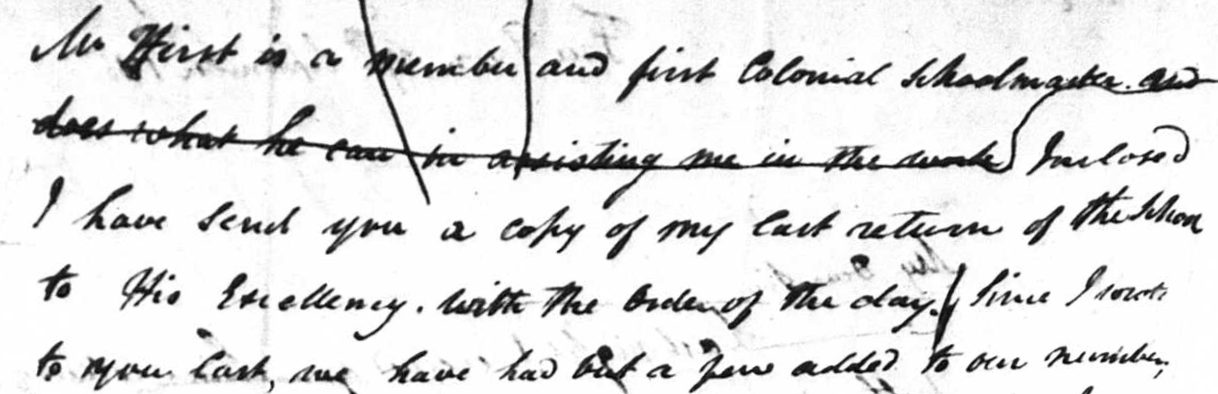 Mr Hirst is a member and first Colonial Schoolmaster. and
does what he can in assisting me in the work Inclosed
I have send you a copy of my last return of the School
to His Excellency. with the Order of the day. Since I wrote
to you last, we have had but a few added to our number,